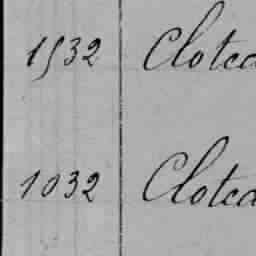 1532 Clotea
1032 Clotea